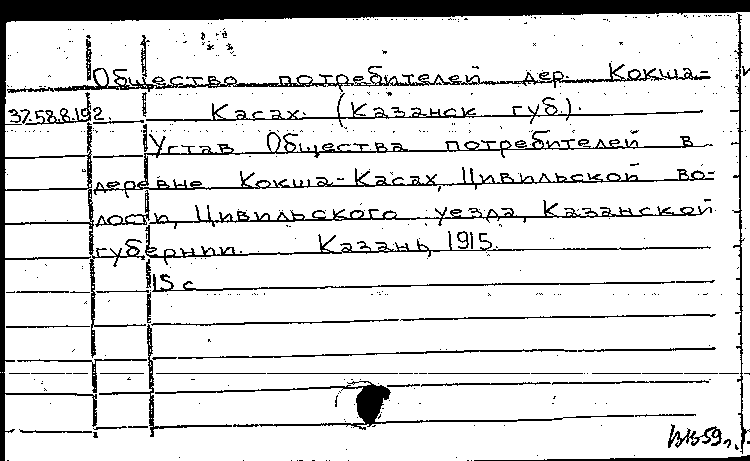 Общество потребителей дер. Кокша-
37.58.8.192.
Касах. (Казанск губ.).
Устав Общества потребителей в
деревне Кокша-Касах, Цивильской во-
лости, Цивильского уезда, Казанской
губернии. Казань, 1915.
15 с